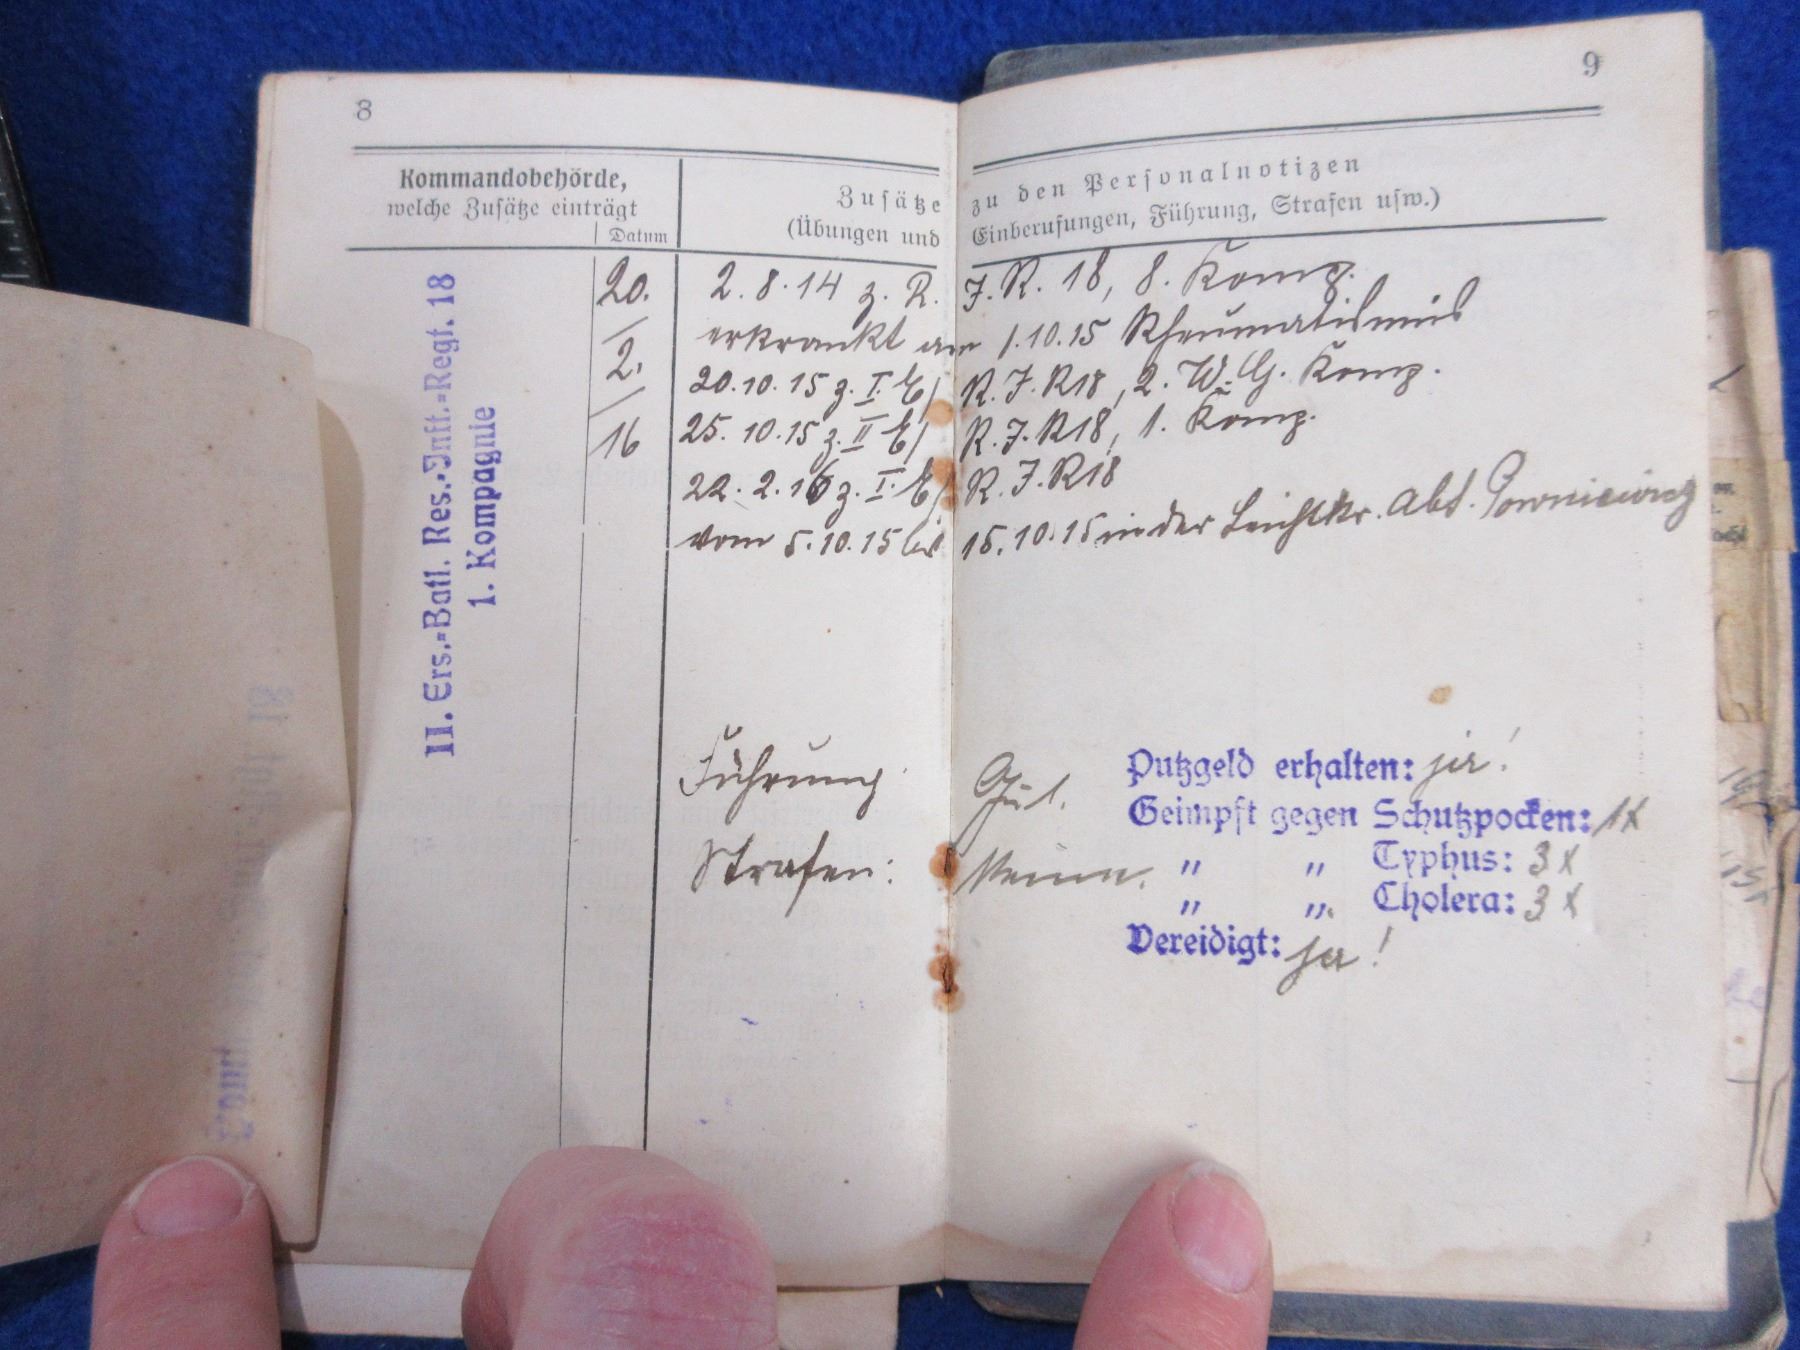 8
9
Kommandobehörde,
welche Zusätze einträgt
Datum
Zusätze zu den Personalnotizen
(Übungen und Einberufungen, Führung, Strafen usw.)
II. Ers.-Batl. Res.-Inft.-Regt. 18
1. Kompagnie
20.
2.
16
2.8.14 z. R. J. R. 18, 8. Komp.
erkrankt am 1.10.15 Rheumatismus
20.10.15 z. I. E/ R.J.R18, 2. W. G. Komp.
25.10.15 z. II E/ R.J.R18, 1. Komp.
22.2.16 z. I. E/ R.J.R18
vom 5.10.15 bis 15.10.15 in der Leichtkr. Abt.
Führung Gut.
Strafen: Keine.
Putzgeld erhalten: ja!
Geimpft gegen Schutzpocken: 1x
" " Typhus: 3x
" " Cholera: 3x
Vereidigt: ja!